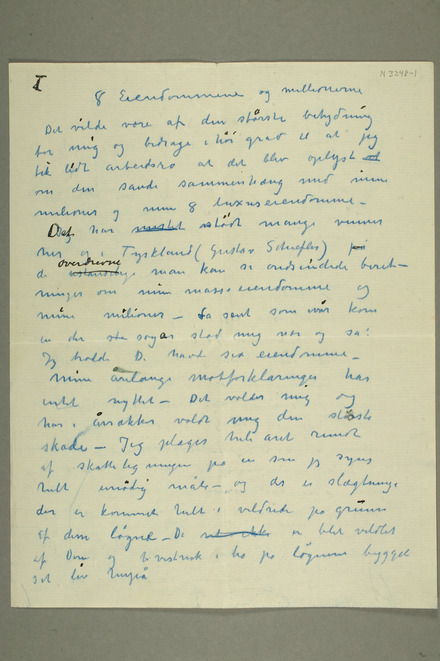 N 3248-1
I
8 Eiendommene og millionerne
Det vilde være af den største betydning
for mig og bidrage i høi grad til at jeg
fik lidt arbeidsro at det blev oplyst
om den sande sammenhæng med mine
milioner og mine 8 luxuseiendomme –
Det har stødt mange venner
her og i Tyskland (Gustav Schiefler)
de overdrevne man kan si ondsindede beret–
ninger om mine masse eiendomme og
mine milioner – Sa sent som ivår kom
en der sto sogar stod mig nær og sa:
Jeg trodde De havde svære eiendomme –
Mine årelange motforklaringer har
intet nyttet – Det volder mig og
har i årrækker voldt mig den største
skade – Jeg plages hele året rundt
af skatteligningen på en som jeg synes
helt unødig måte – og de er slægtninge
der er kommet helt i vildrede på grunn
af den løgne – De er blet vildlet
af Dem og i
på løgnene bygget
sit liv